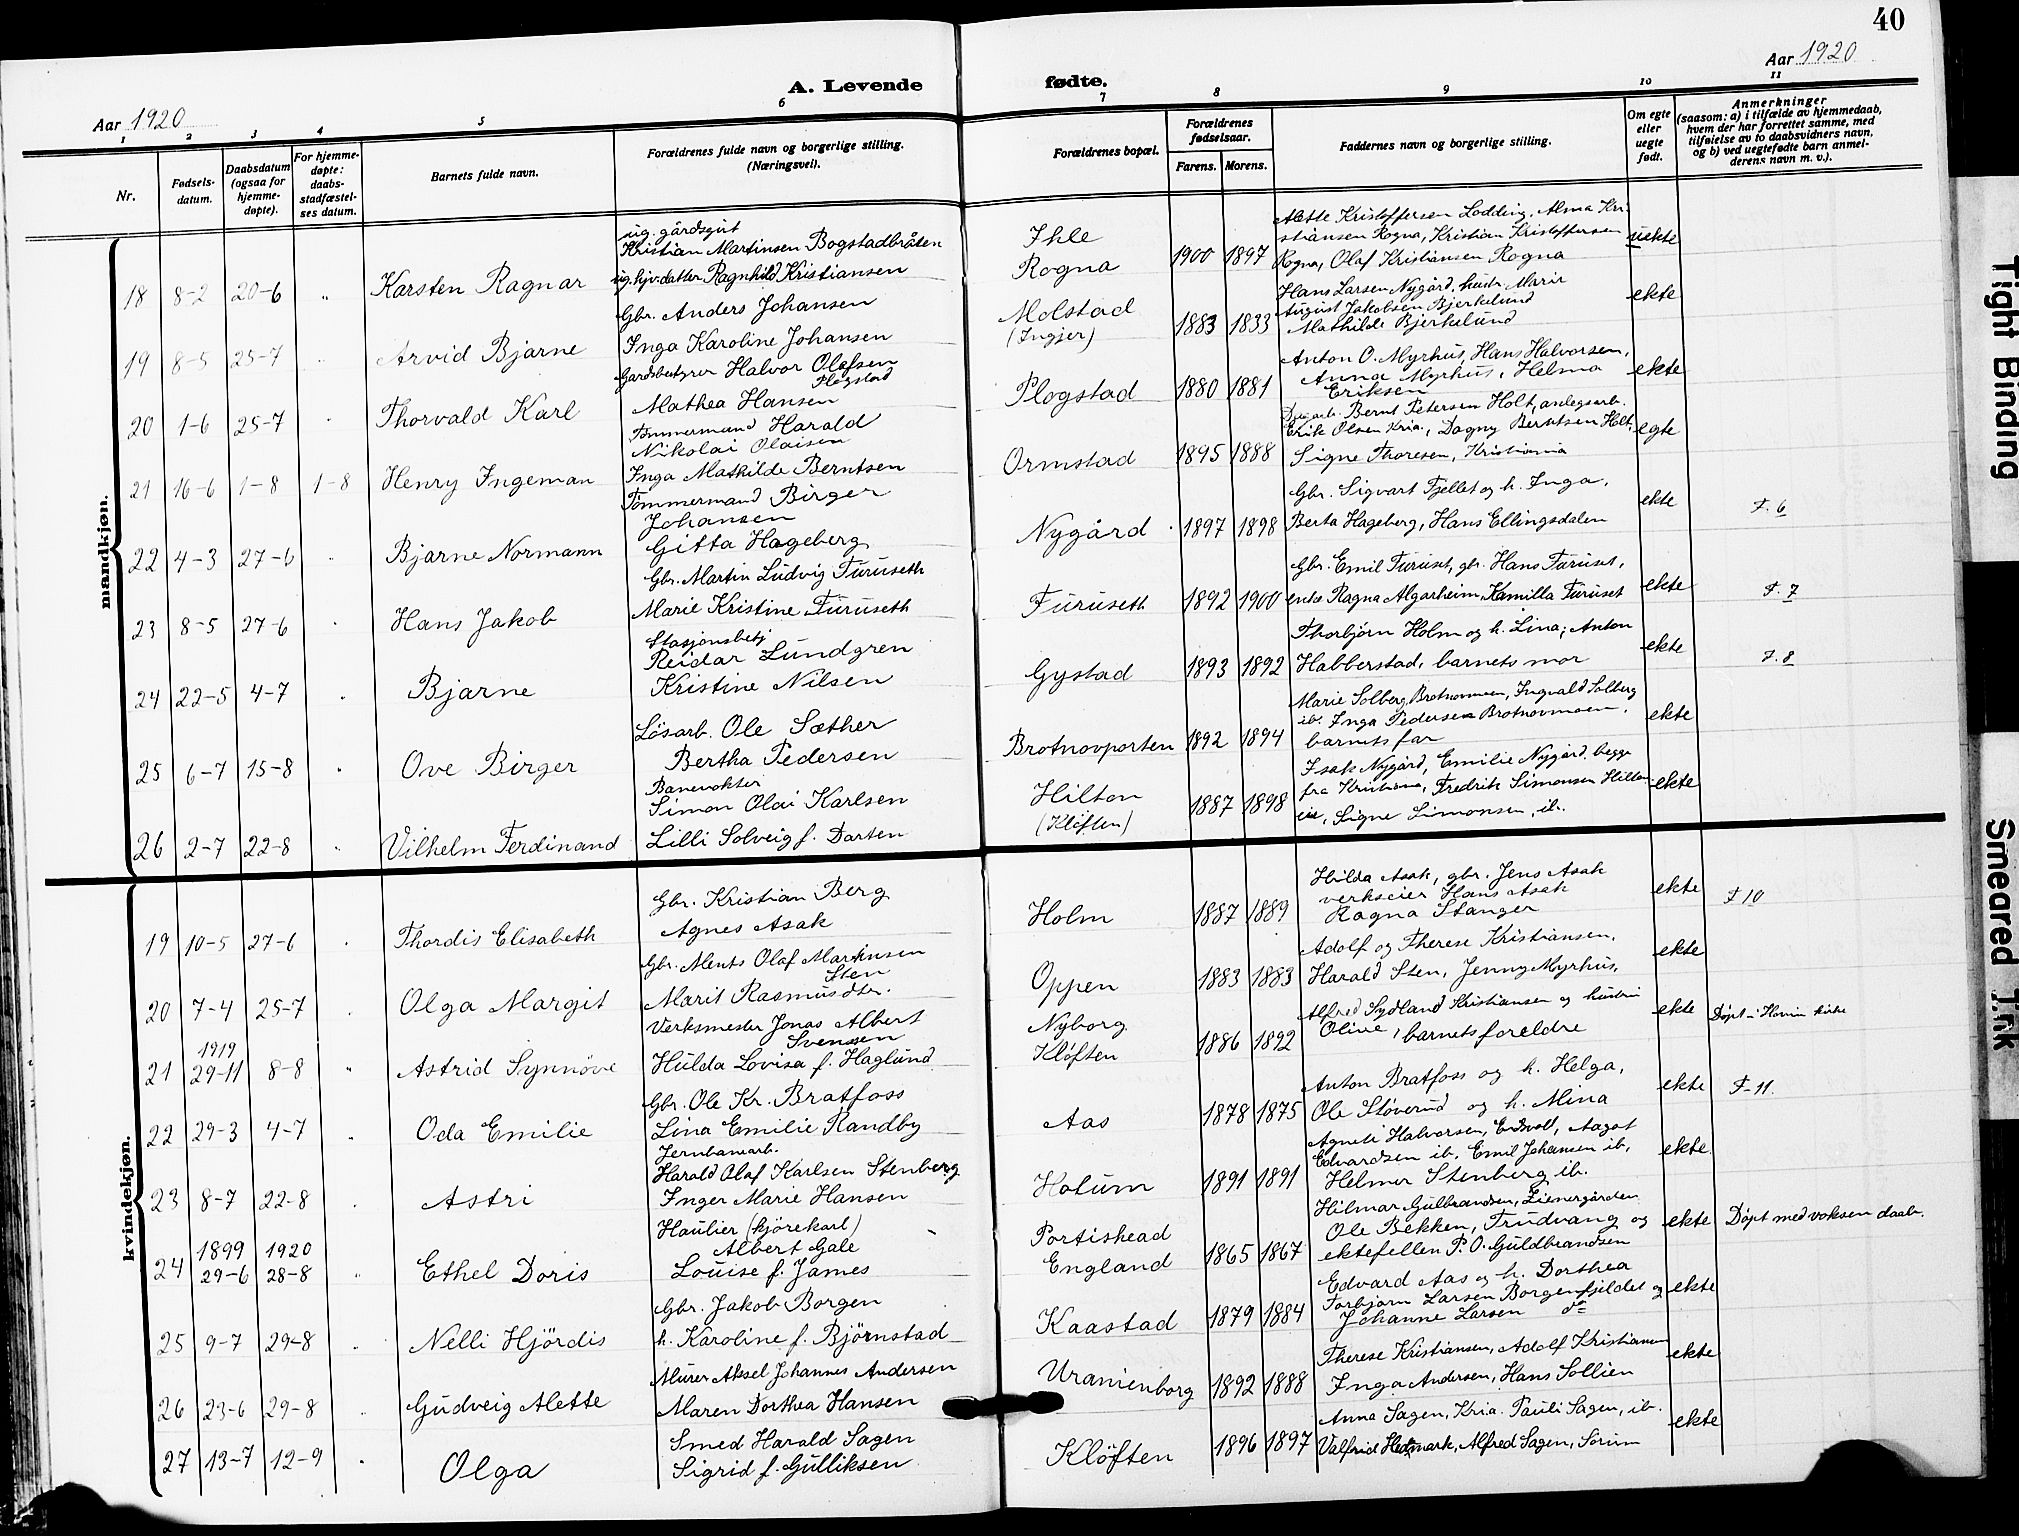 40
Aar 1920
A. Levende fødte.
Aar 1920
1 2 3 4 5 6 7 8 9 10 11
Nr.
Fødsels-
datum.
Daabsdatum
(ogsaa for
hjemme-
døpte).
For hjemme-
døpte:
daabs-
stadfæstel-
ses datum.
Barnets fulde navn.
Forældrenes fulde navn og borgerlige stilling.
(Næringsvei).
Forældrenes bopæl.
Forældrenes
fødselsaar.
Farens. Morens.
Faddernes navn og borgerlige stilling.
Om egte
eller
uegte
født.
Anmerkninger
(saasom: a) i tilfælde av hjemmedaab,
hvem der har forrettet samme, med
tilføielse av to daabsvidners navn,
og b) ved uegtefødte barn anmel-
derens navn m. v.).
mandkjøn.
18 8-2 20-6 " Karsten Ragnar
ug. gårdsgut
Kristian Martinsen Bogstadbråten
ug. hjv. datter Ragnhild Kristiansen
Ihle
Rogna
1900 1897
Alette Kristoffersen Lodding, Alma Kri-
stiansen Rogna, Kristian Kristoffersen
Rogna, Olaf Kristiansen Rogna
uekte
19 8-5 25-7 " Arvid Bjarne
Gbr. Anders Johansen
Inga Karoline Johansen
Molstad
(Ingjer)
1883 1833
Hans Larsen Nygård, hustr. Marie
August Jakobsen Bjerkelund
Mathilde Bjerkelund
ekte
20 1-6 25-7 " Thorvald Karl
Gardsbestyrer Halvor Olafsen
Plogstad
Mathea Hansen
Plogstad
1880 1881
Anton O. Myrhus, Hans Halvorsen,
Anna Myrhus, Helma
Eriksen
ekte
21 16-6 1-8 1-8 Henry Ingeman
Tømmermand Harald
Nikolai Olaisen
Inga Mathilde Berntsen
Ormstad
1895 1888
Bernt Petersen Holt, anlegsarb.
Erik Olsen Kria., Dagny Berntsen Holt,
Signe Thoresen, Kristiania
egte
22 4-3 27-6 " Bjarne Normann
Tømmermand Birger
Johansen
Gitta Hageberg
Nygård
1897 1898
Gbr. Sigvart Fjellet og h. Inga,
Berta Hageberg, Hans Ellingsdalen
ekte
F. 6
23 8-5 27-6 " Hans Jakob
Gbr. Martin Ludvig Furuseth
Marie Kristine Furuseth
Furuseth
1892 1900
Gbr. Emil Furuset, gbr. Hans Furuset,
enke Ragna Algarheim, Kamilla Furuset
ekte
F. 7
24 22-5 4-7 " Bjarne
Stasjonsbetj
Reidar Lundgren
Kristine Nilsen
Gystad
1893 1892
Thorbjørn Holm og h. Lina; Anton
Habberstad, barnets mor
ekte
F. 8
25 6-7 15-8 " Ove Birger
Løsarb. Ole Sæther
Bertha Pedersen
Brotnovporten
1892 1894
Marie Solberg, Brotnovmoen, Ingvald Solberg
ib. Inga Pedersen Brotnovmoen,
barnets far
ekte
26 2-7 22-8 " Vilhelm Ferdinand
Banevokter
Simon Olai Karlsen
Lilli Solveig f. Darten
Hilton
(Kløften)
1887 1898
Isak Nygård, Emilie Nygård, begge
fra Kristiania, Fredrik Simonsen Hilton
Signe Simonsen, ib.
ekte
kvindekjøn.
19 10-5 27-6 " Thordis Elisabeth
Gbr. Kristian Berg
Agnes Asak
Holm
1887 1889
Hilda Asak, gbr. Jens Asak
verkseier Hans Asak
Ragna Stanger
ekte
F 10
20 7-4 25-7 " Olga Margit
Gbr. Ments Olaf Martinsen
Sten
Marit Rasmusdtr.
Oppen
1883 1883
Adolf og Therese Kristiansen,
Harald Sten, Jenny Myrhus,
ekte
21 1919
29-11 8-8 " Astrid Synnöve
Verksmester Jonas Albert
Svenssen
Hulda Lovisa f. Haglund
Nyborg
Kløften
1886 1892
Alfred Sydland Kristiansen og hustru
Olive, barnets foreldre
ekte
Døpt i Hovin kirke
22 29-3 4-7 " Oda Emilie
Gbr. Ole Kr. Bratfoss
Lina Emilie Randby
Aas
1878 1875
Anton Bratfoss og h. Helga,
Ole Støverud og h. Mina
ekte
F-11.
23 8-7 22-8 " Astri
Jernbanearb.
Harald Olaf Karlsen Stenberg
Inger Marie Hansen
Hotum
1891 1891
Agneti Halvorsen, Eidsvold, Aagot
Edvardsen ib., Emil Johansen ib.,
Helmer Stenberg ib.
ekte.
24 1899 1920
29-6 28-8 " Ethel Doris
Haulier (kjörekarl)
Albert Gale
Louise f. James
Portishead
England
1865 1867
Hilmar Gulbrandsen, Lienergården
Ole Bekken, Trudvang og
ektefellen P. O. Guldbrandsen
ekte
Døpt med voksen daab.
25 9-7 29-8 " Nelli Hjördis
Gbr. Jakob Borgen
h. Karoline f. Bjørnstad
Kaastad
1879 1884
Edvard Aas og h. Dorthea
Torbjørn Larsen Borgenfjeldet og
Johanne Larsen do
ekte
26 23-6 29-8 " Gudveig Alette
Murer Aksel Johannes Andersen
Maren Dorthea Hansen
Uranienborg
1892 1888
Therese Kristiansen, Adolf Kristiansen
Inga Andersen, Hans Sollien
ekte
27 13-7 12-9 " Olga
Smed Harald Sagen
Sigrid f. Gulliksen
Kløften
1896 1897
Anna Sagen, Kria. Pauli Sagen, ib.
Valfrid Hedmark, Alfred Sagen, Sørum
ekte
Tight Binding
Smeared Ink